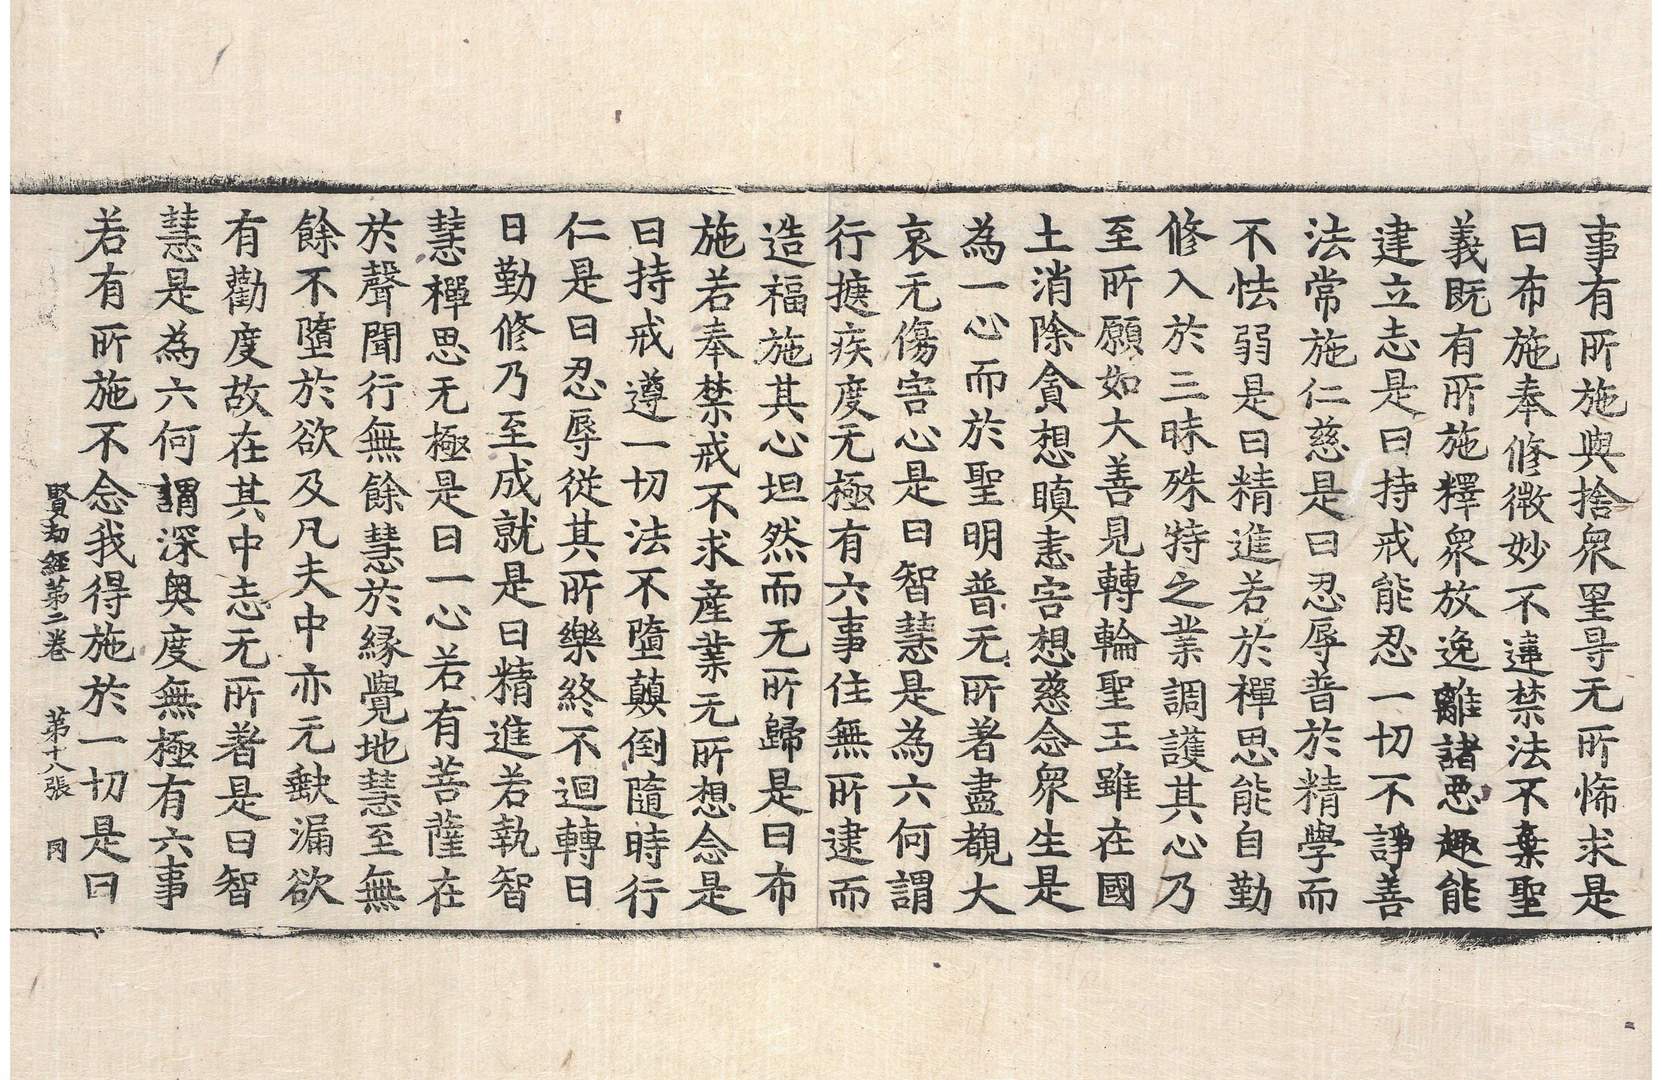 事有所施與捨衆里㝵无所悕求是
曰布施奉修微妙不違禁法不棄聖
義既有所施釋衆放逸離諸惡趣能
建立志是曰持戒能忍一切不諍善
法常施仁慈是曰忍辱普於精學而
不怯弱是曰精進若於禪思能自勤
修入於三昧殊特之業調護其心乃
至所願如大善見轉輪聖王雖在國
土消除貪想瞋恚害想慈念衆生是
為一心而於聖明普无所著盡覩大
哀无傷害心是曰智慧是為六何謂
行摭疾度无極有六事住無所逮而
造福施其心坦然而无所歸是曰布
施若奉禁戒不求産業无所想念是
曰持戒遵一切法不墮顚倒隨時行
仁是曰忍辱從其所樂終不迴轉日
日勤修乃至成就是曰精進若執智
慧禪思无極是曰一心若有菩薩在
於聲聞行無餘慧於緣覺地慧至無
餘不墮於欲及凡夫中亦无缺漏欲
有勸度故在其中志无所著是曰智
慧是為六何謂深奥度無極有六事
若有所施不念我得施於一切是曰
賢劫經第二卷 第十八張 同